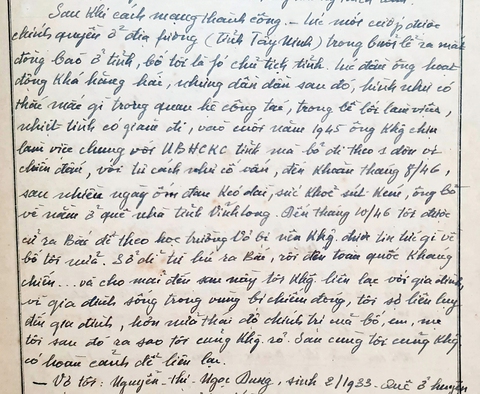 Sau khi cách mạng thành công. - lúc mới cướp được
chính quyền ở địa phương (tỉnh Tây Ninh) trong buổi lễ ra mắt
đồng bào ở tỉnh, bố tôi là fó chủ tịch tỉnh. lúc đầu ông hoạt
động khá hăng hái, nhưng dần dần sau đó, hình như có
thắc mắc gì trong quan hệ công tác, trong lề lối làm việc,
nhiệt tình có giảm đi, vào cuối năm 1945 ông Khg chịu
làm việc chung với UBHCKC tỉnh mà bỏ đi theo 1 đơn vị
chiến đấu, với tư cách như cố vấn, đến khoảng tháng 8/46,
sau nhiều ngày ốm đau kéo dài, sức khoẻ sút kém, ông bỏ
về nằm ở quê nhà tỉnh Vĩnh Long. Đến tháng 10/46 tôi được
cử ra Bắc để theo học trường Võ bị nên Khg. được tin tức gì về
bố tôi nữa. Sở dĩ từ lúc ra Bắc, rồi đến toàn quốc kháng
chiến... và cho mãi đến sau này tôi Khg. liên lạc với gia đình,
vì gia đình sống trong vùng bị chiếm đóng, tôi sợ liên lụy
đến gia đình, hơn nữa thái độ chính trị mà bố, em, mẹ
tôi sau đó ra sao tôi cũng Khg. rõ. Sau cùng tôi cũng Khg.
có hoàn cảnh để liên lạc.
- Vợ tôi: Nguyễn-thị-Ngọc Dung, sinh 2/1933. Quê ở huyện